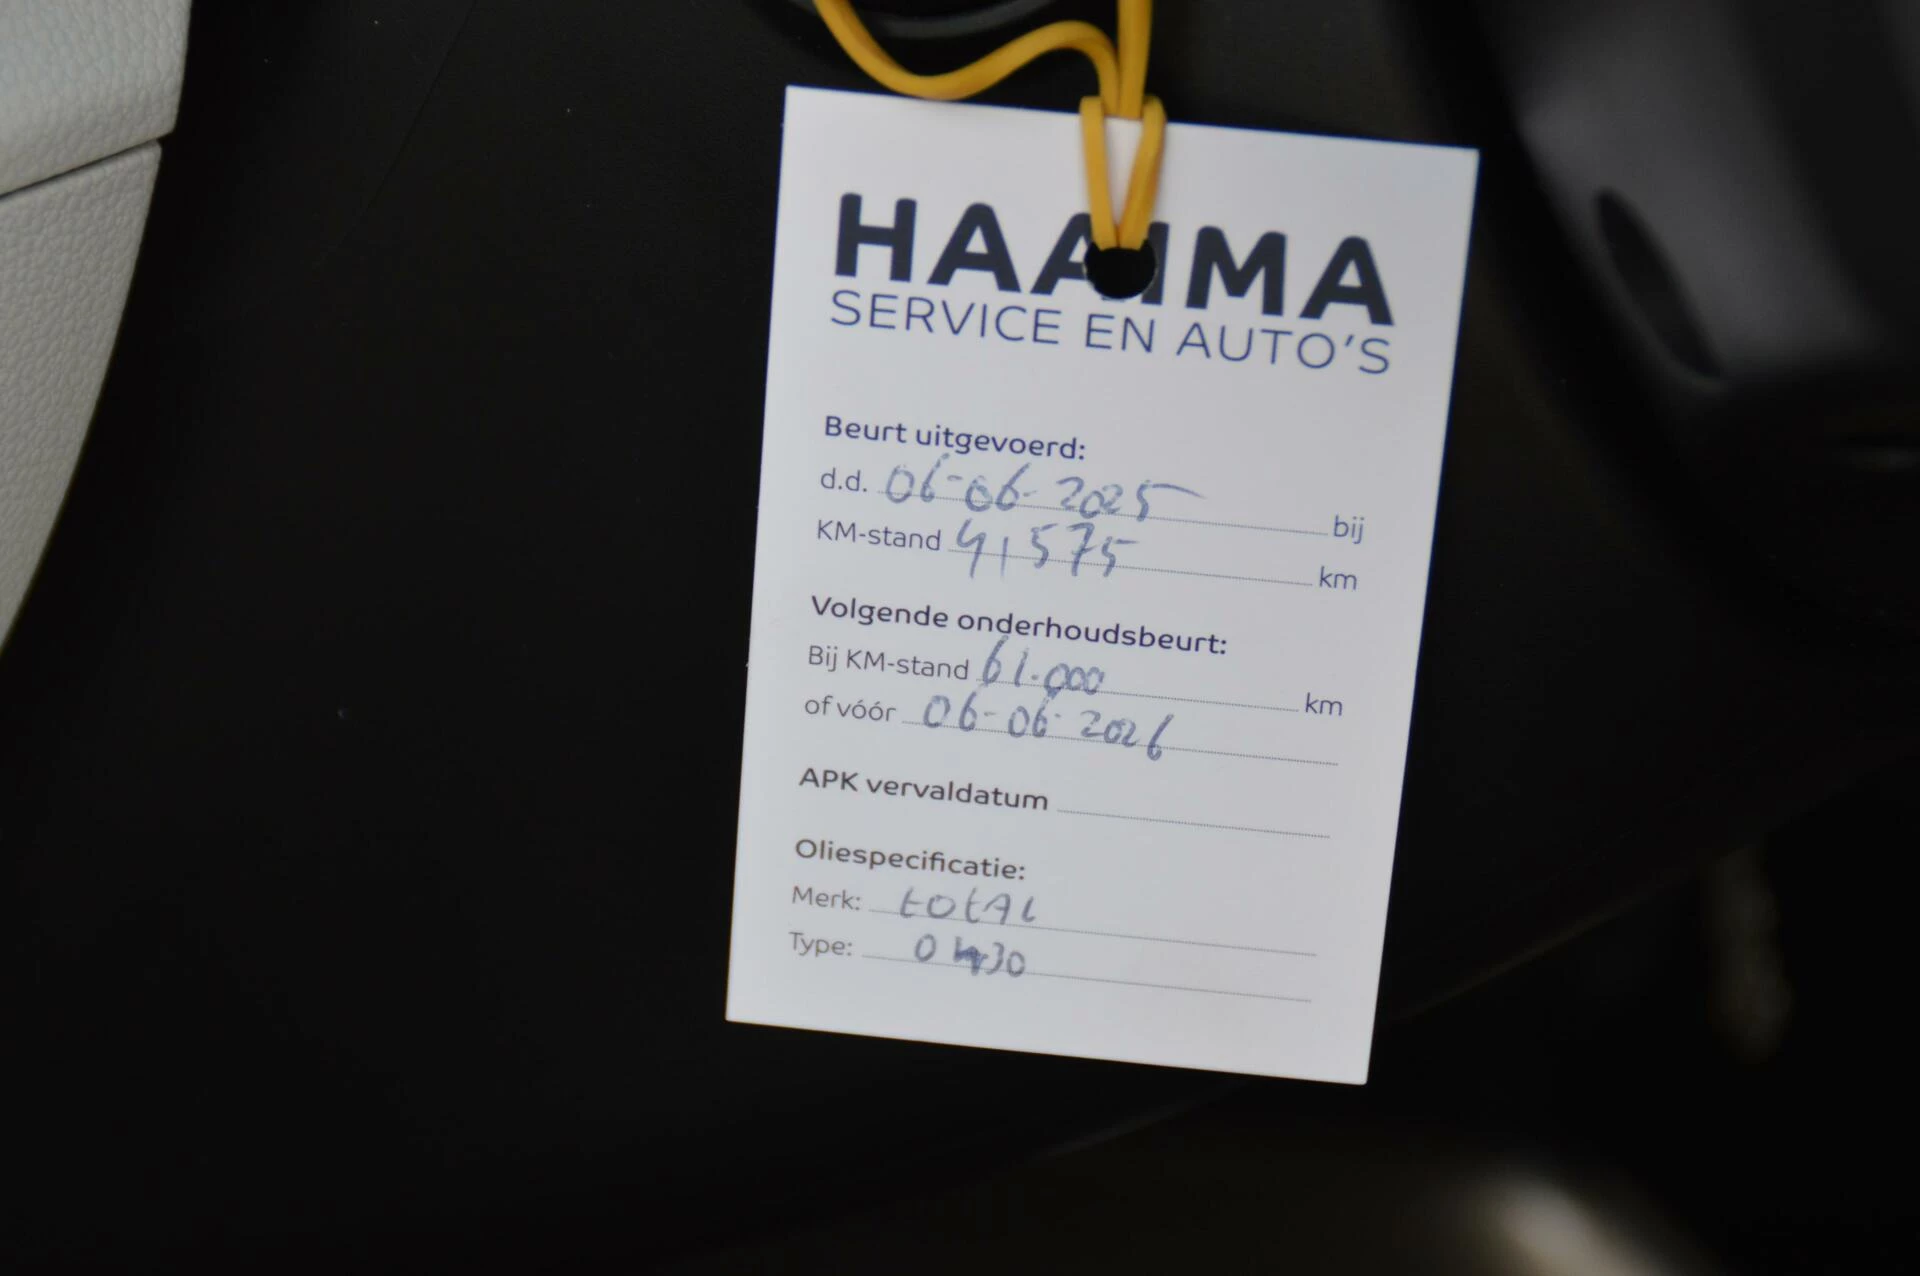 HAAIMA
SERVICE EN AUTO'S
Beurt uitgevoerd:
d.d. 06-06-2025 bij
KM-stand 41,575 km
Volgende onderhoudsbeurt:
Bij KM-stand 61.000 km
of vóór 06-06-2026
APK vervaldatum
Oliespecificatie:
Merk: total
Type: 0W30